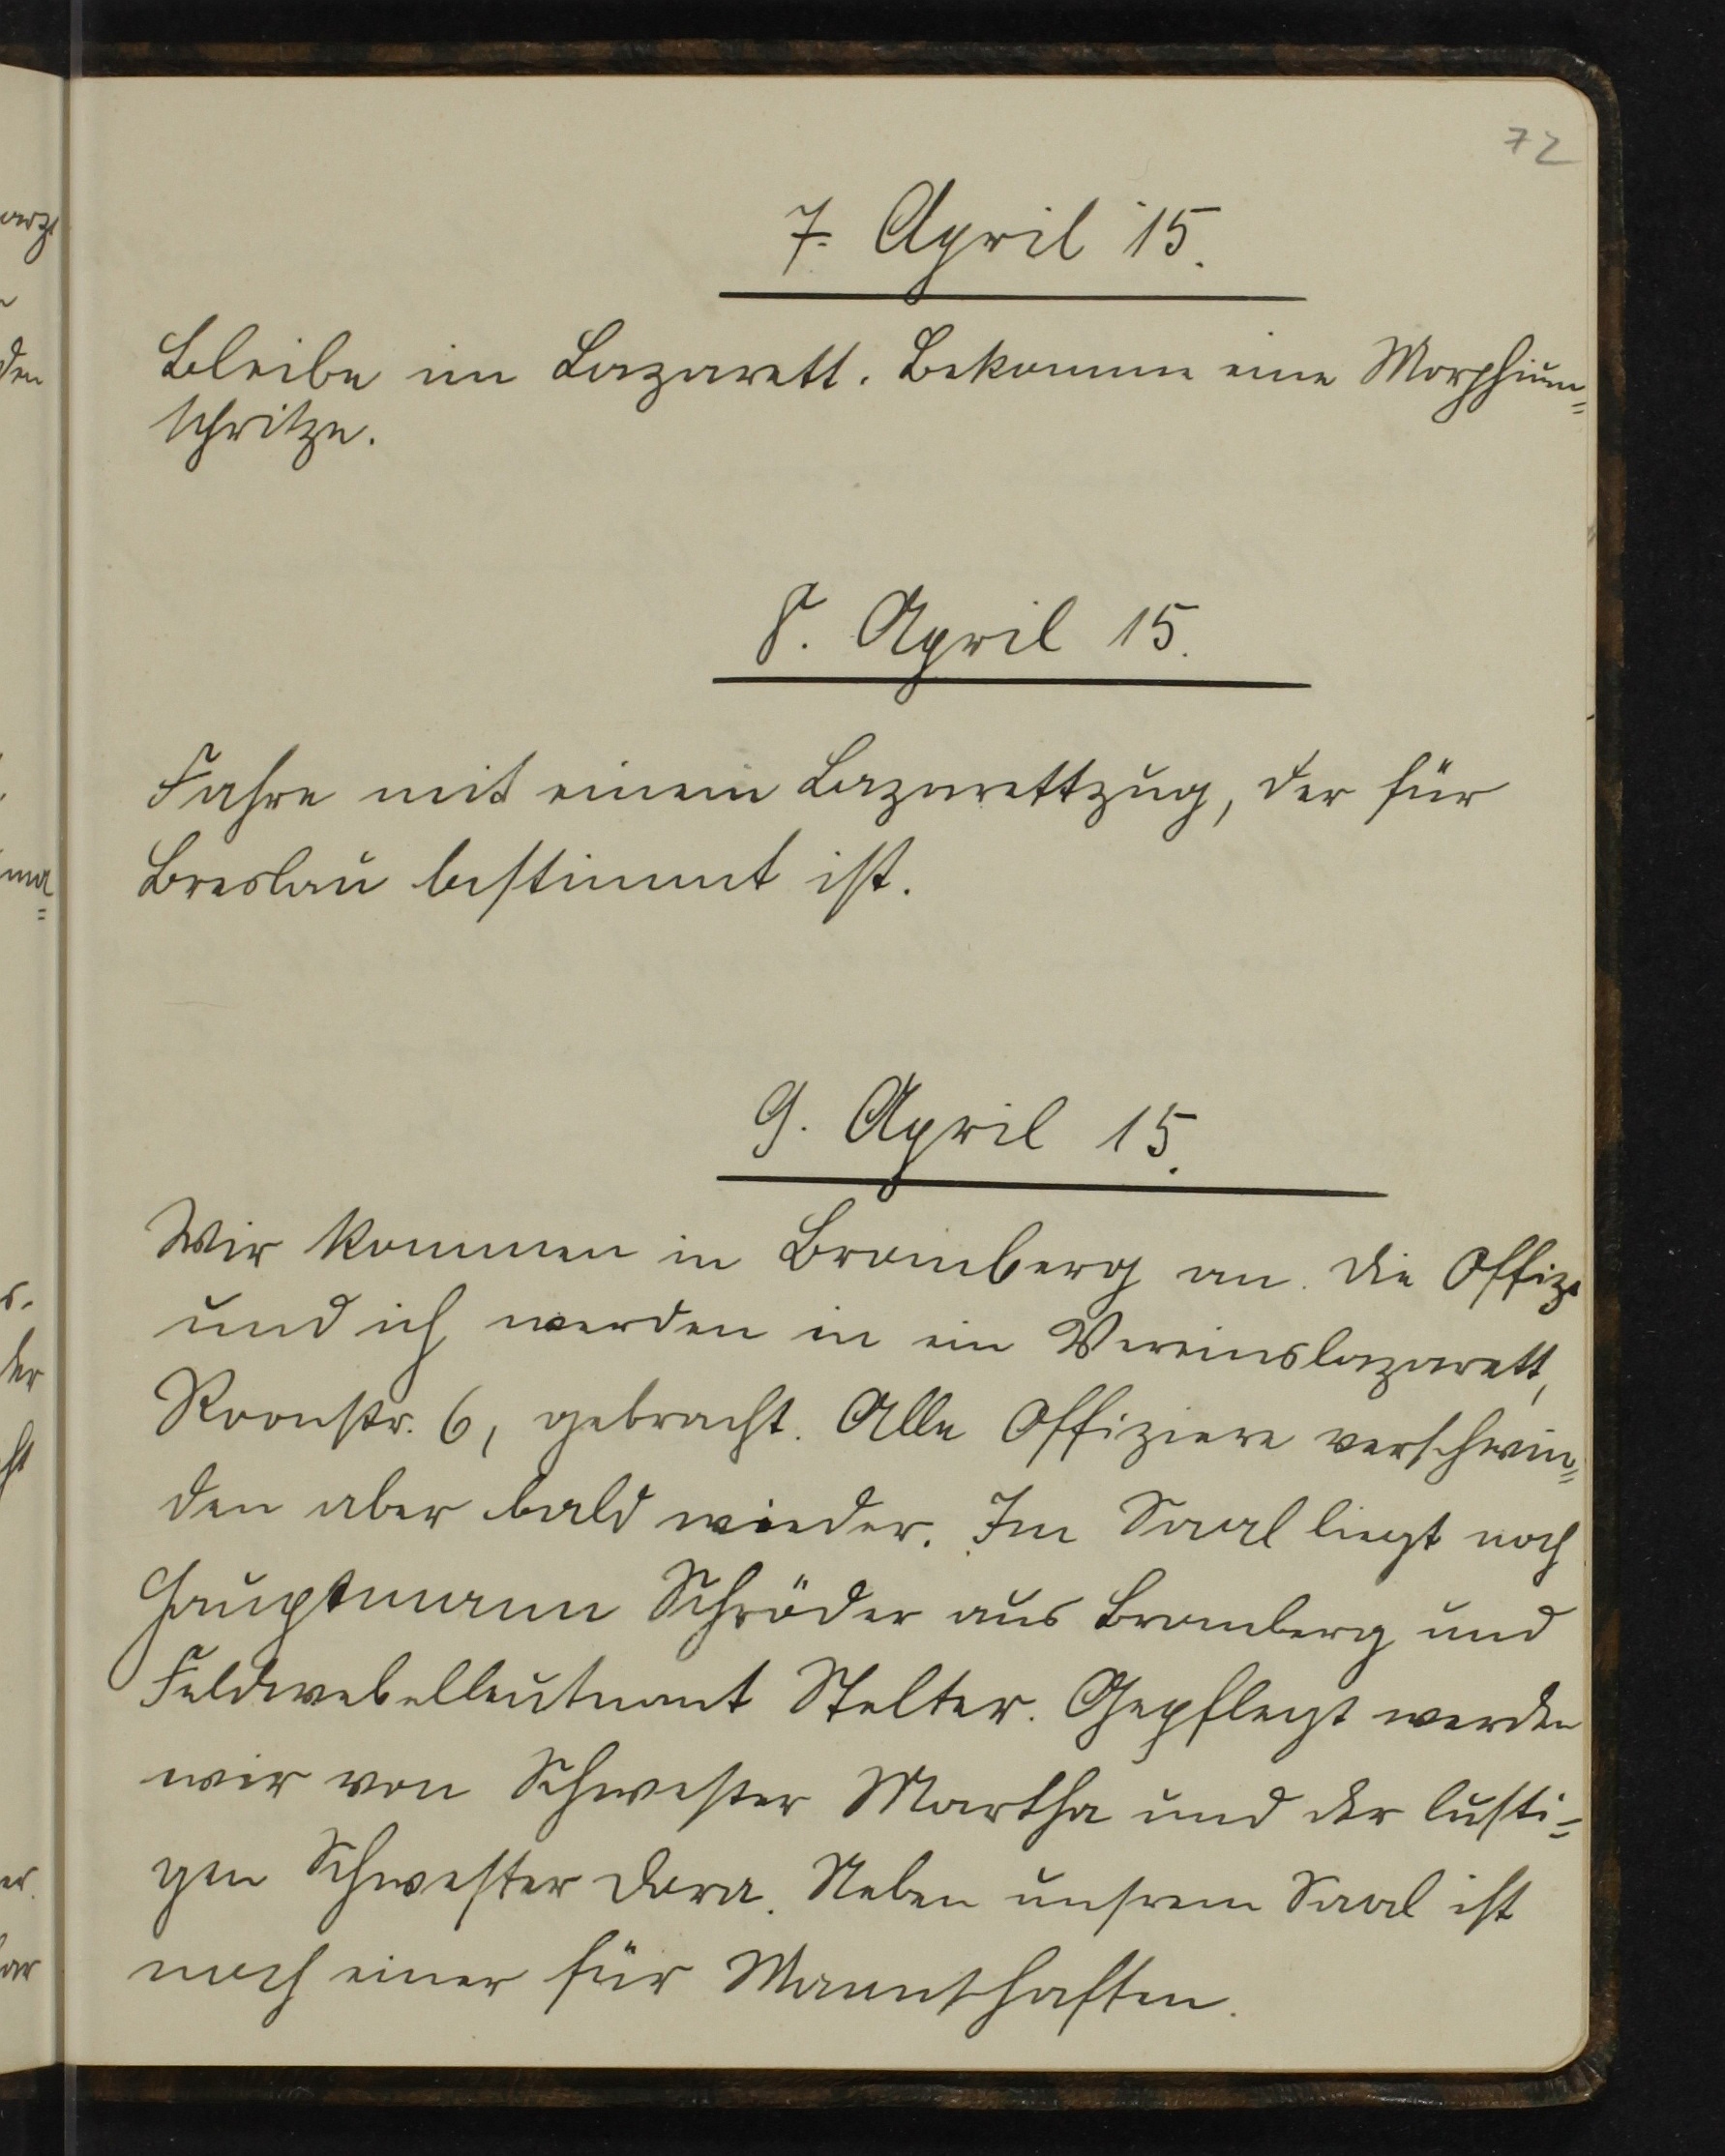 72
7. April 15.
Bleibe im Lazarett. Bekomme eine Morphium=
spritze.
8. April 15.
Fahre mit einem Lazarettzug, der für
Breslau bestimmt ist.
9. April 15.
Wir kommen in Bromberg an. Die Offiz.
und ich werden in ein Vereinslazarett,
Roonstr. 6, gebracht. Alle Offiziere verschwin=
den aber bald wieder. Im Saal liegt noch
Hauptmann Schröder aus Bromberg und
Feldwebelleutnant Stelter. Gepflegt werden
wir von Schwester Martha und der lusti=
gen Schwester Dora. Neben unsrem Saal ist
noch einer für Mannschaften.